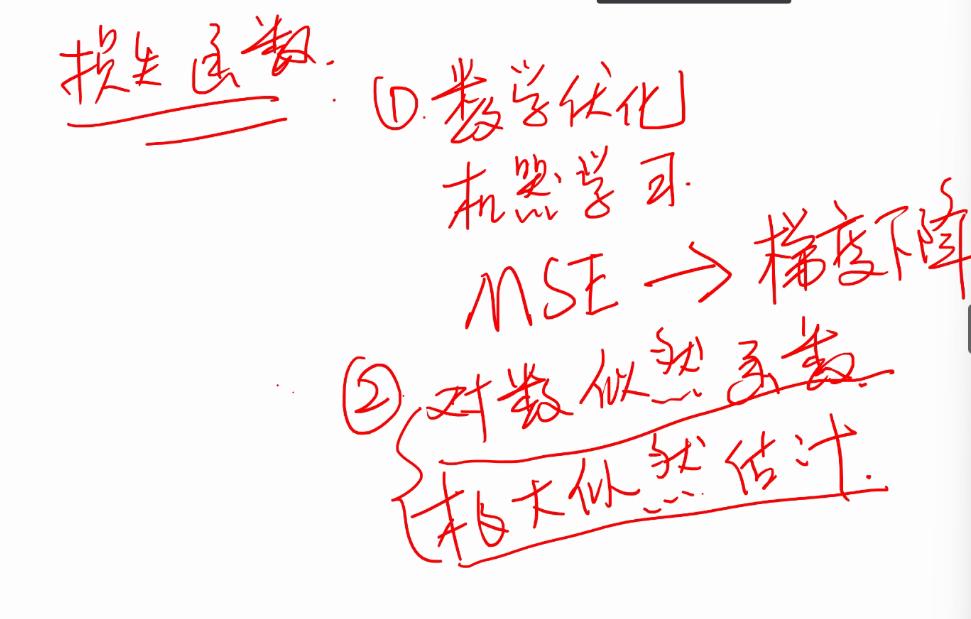 损失函数.
①.数学优化
机器学习.
MSE → 梯度下降
② 对数似然函数.
极大似然估计.